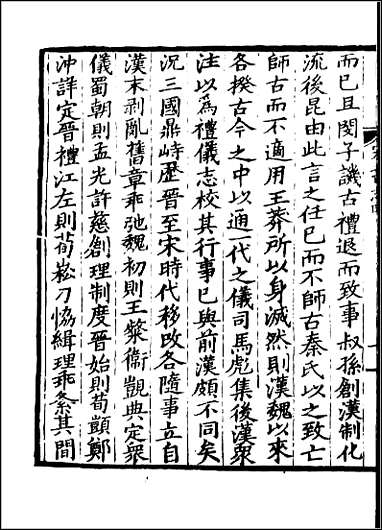 而已且閔子譏古禮退而致事叔孫創漢制化
流後昆由此言之任已而不師古秦氏以之致亡
師古而不適用王莽所以身滅然則漢魏以來
各揆古今之中以通一代之儀司馬彪集後漢衆
注以爲禮儀志校其行事已與前漢頗不同矣
況三國鼎峙歷晉至宋時代移改各隨事立自
漢末剥亂舊章乖弛魏初則王粲衞覬典定衆
儀蜀朝則孟光許慈創理制度晉始則荀顗鄭
沖詳定晉禮江左則荀崧刁恊緝理乖紊其間